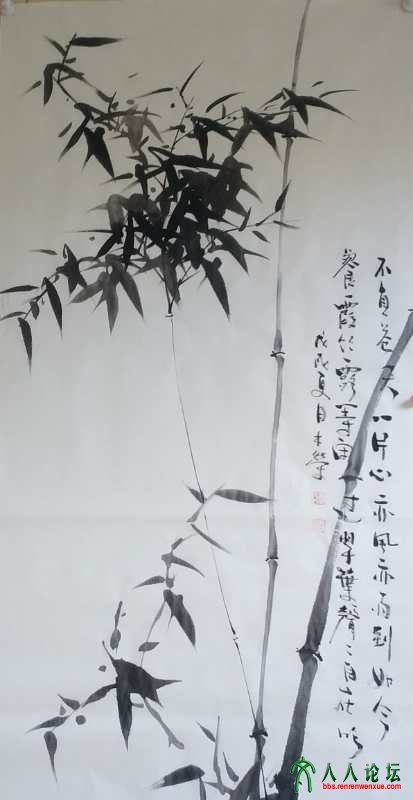 不負苍天一片心亦風亦雨到如今
餐霞饮露等闲過葉葉聲聲自在吟
戊戌夏
人人论坛
bbs.renrenwenxue.com